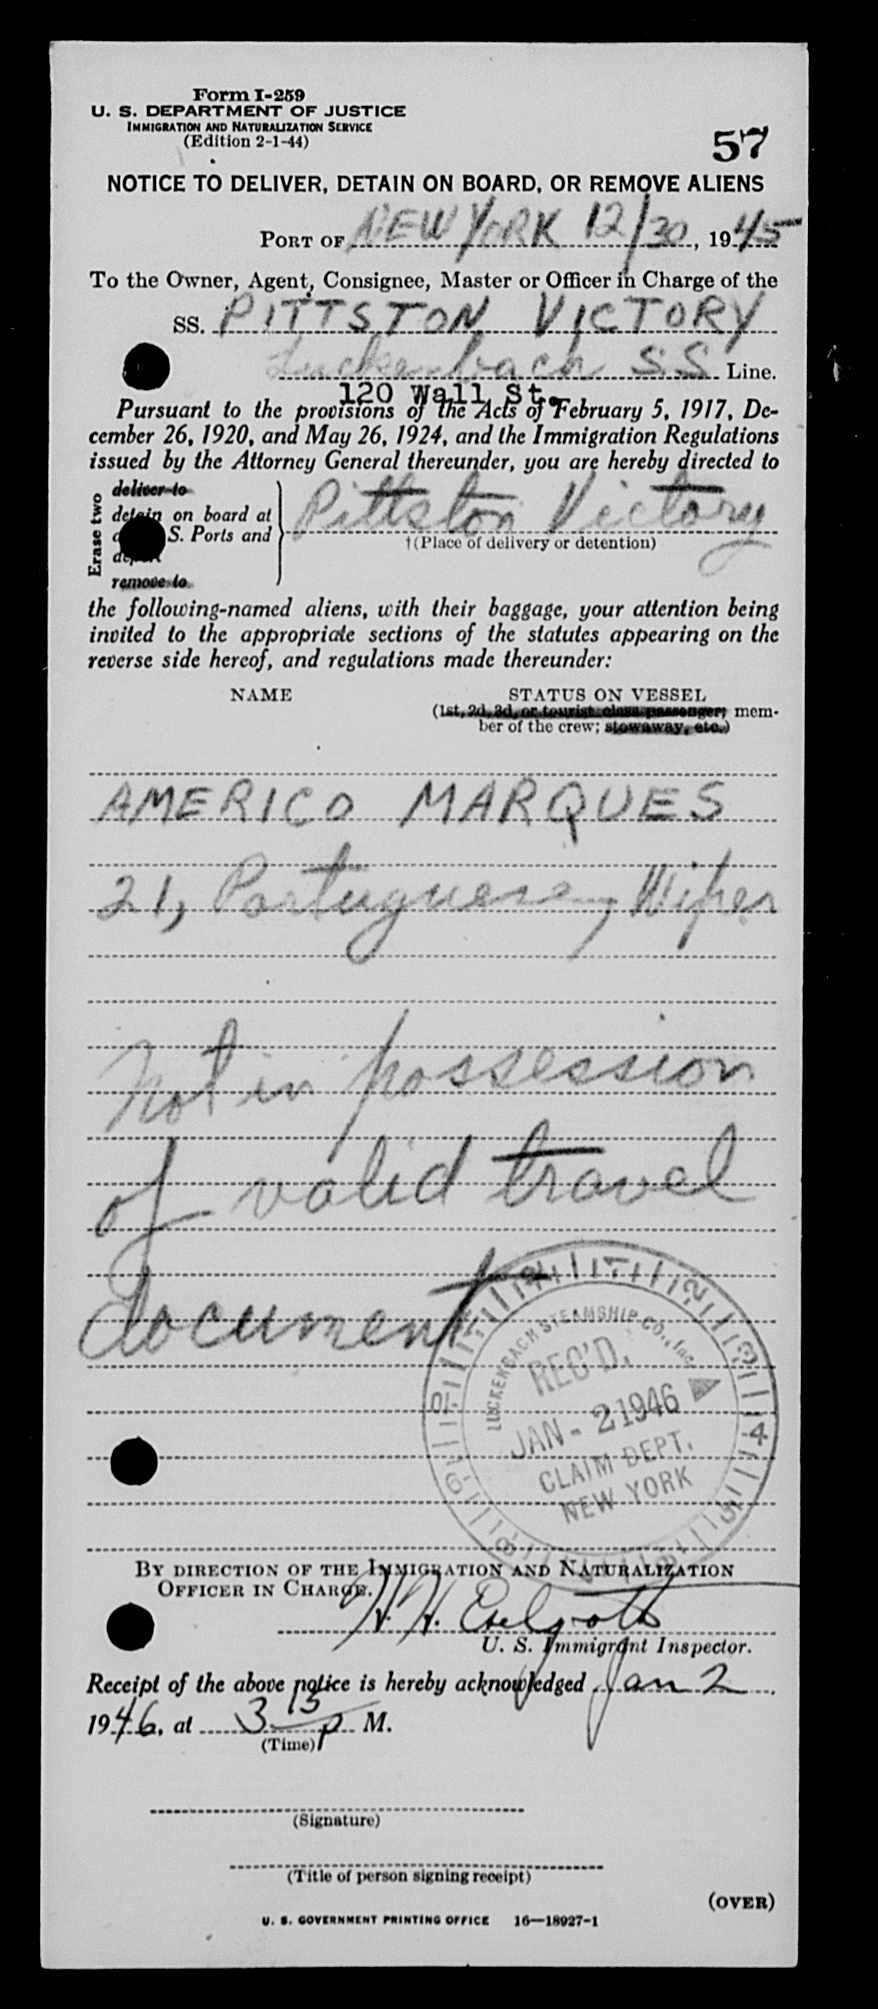 Form I-259
U. S. DEPARTMENT OF JUSTICE
IMMIGRATION AND NATURALIZATION SERVICE
(Edition 2-1-44)
57
NOTICE TO DELIVER, DETAIN ON BOARD, OR REMOVE ALIENS
PORT OF NEW YORK 12/30, 1945
To the Owner, Agent, Consignee, Master or Officer in Charge of the
SS. PITTSTON VICTORY
Luckenbach SS Line.
120 Wall St.
Pursuant to the provisions of the Acts of February 5, 1917, De-
cember 26, 1920, and May 26, 1924, and the Immigration Regulations
issued by the Attorney General thereunder, you are hereby directed to
Erase two
deliver to
detain on board at
S. Ports and
remove to
Pittston Victory
†(Place of delivery or detention)
the following-named aliens, with their baggage, your attention being
invited to the appropriate sections of the statutes appearing on the
reverse side hereof, and regulations made thereunder:
NAME STATUS ON VESSEL
(1st, 2d, 3d, or tourist class passenger; mem-
ber of the crew; stowaway, etc.)
AMERICO MARQUES
21, Portuguese, Wiper
Not in possession
of valid travel
document
LUCKENBACH STEAMSHIP CO., Inc.
REC'D.
JAN - 2 1946
CLAIM DEPT.
NEW YORK
BY DIRECTION OF THE IMMIGRATION AND NATURALIZATION
OFFICER IN CHARGE.
U. S. Immigrant Inspector.
Receipt of the above notice is hereby acknowledged Jan 2,
1946, at 3 15 P M.
(Time)
(Signature)
(Title of person signing receipt)
(OVER)
U. S. GOVERNMENT PRINTING OFFICE 16—18927-1